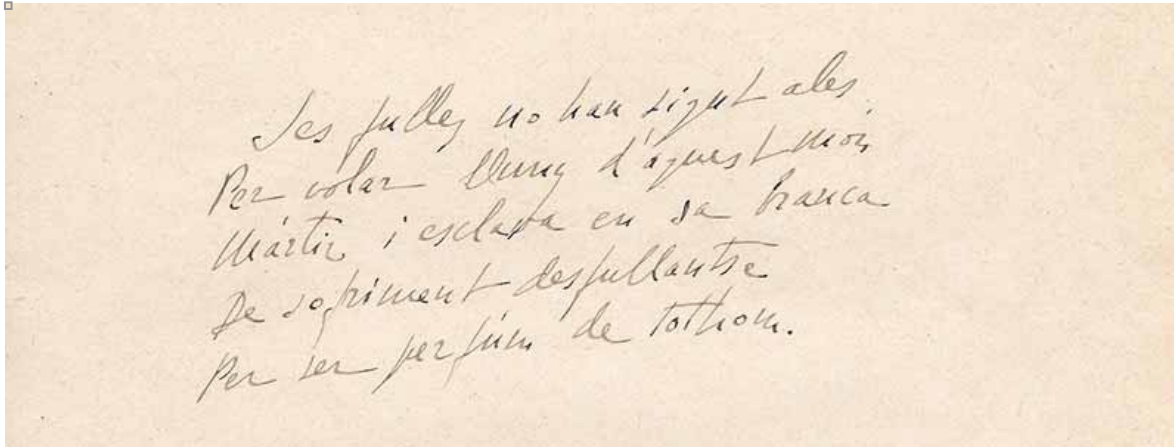 Ses fulles no han sigut ales
Per volar lluny d'aquest món
Mártir i esclava en sa branca
De sofriment desfullantse
Per ser perfúm de tothom.